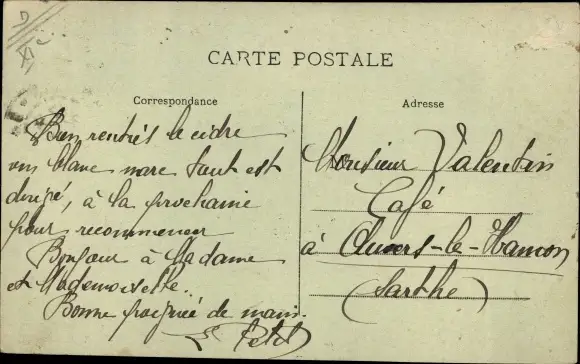 D
XI e
CARTE POSTALE
Correspondance
Adresse
Bien rentrés le cidre
vin blanc marc tout est
, à la prochaine
pour recommencer
Bonjour à Madame
et Mademoiselle.
Bonne poignée de main.
Petit
Monsieur Valentin
Café
à Auvers-le-Hamon
(Sarthe)